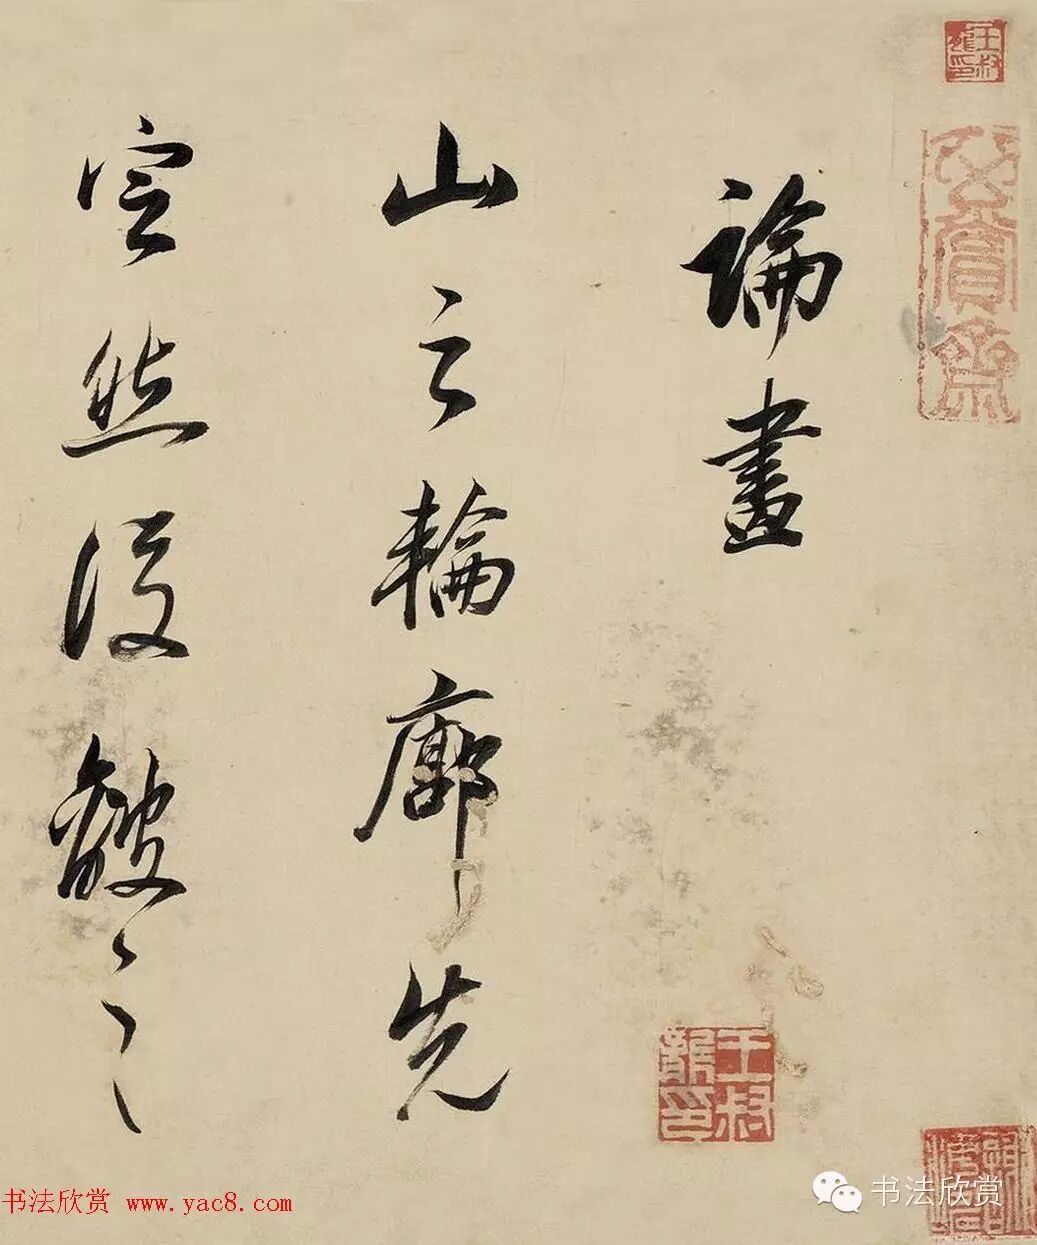 論畫
山之輪廓先
定然後皴之
王叔
龍印
書法欣赏 www.yac8.com
书法欣赏